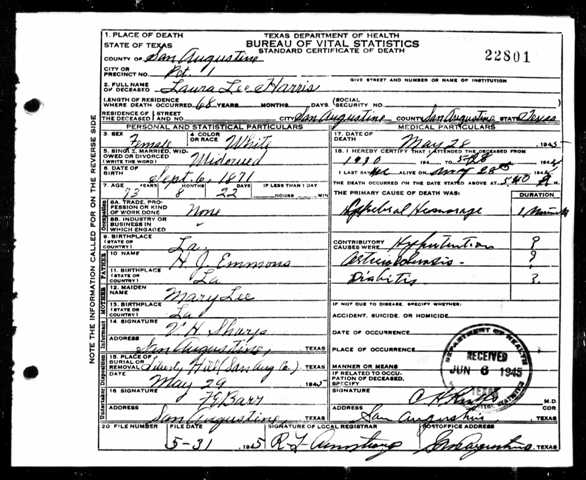 TEXAS DEPARTMENT OF HEALTH
BUREAU OF VITAL STATISTICS
STANDARD CERTIFICATE OF DEATH
22801
1. PLACE OF DEATH
STATE OF TEXAS
COUNTY OF San Augustine
CITY OR PRECINCT NO. Pct. 1
GIVE STREET AND NUMBER OR NAME OF INSTITUTION
2. FULL NAME OF DECEASED Laura Lee Harris
LENGTH OF RESIDENCE WHERE DEATH OCCURRED 68 YEARS MONTHS DAYS (SOCIAL SECURITY NO.
RESIDENCE OF THE DECEASED STREET AND NO. CITY San Augustine COUNTY San Augustine STATE Texas
PERSONAL AND STATISTICAL PARTICULARS
MEDICAL PARTICULARS
3. SEX Female
4. COLOR OR RACE White
17. DATE OF DEATH May 28 1945
5. SINGLE, MARRIED, WIDOWED OR DIVORCED (WRITE THE WORD) Widowed
18. I HEREBY CERTIFY THAT I ATTENDED THE DECEASED FROM
1930 TO 5-28
6. DATE OF BIRTH Sept. 6, 1871
I LAST SAW ALIVE ON May 28
7. AGE 73 8 22 IF LESS THAN 1 DAY
HOURS MIN.
THE DEATH OCCURRED ON THE DATE STATED ABOVE AT 5:40
THE PRIMARY CAUSE OF DEATH WAS:
DURATION
8A. TRADE, PROFESSION OR KIND OF WORK DONE None
Hemorage
8B. INDUSTRY OR BUSINESS IN WHICH ENGAGED
9. BIRTHPLACE (STATE OR COUNTRY) La.
CONTRIBUTORY CAUSES WERE: Hypertention ?
10. NAME H J Emmons
?
11. BIRTHPLACE (STATE OR COUNTRY) La
Diabitis ?
12. MAIDEN NAME Mary Lee
13. BIRTHPLACE (STATE OR COUNTRY) La
IF NOT DUE TO DISEASE, SPECIFY WHETHER:
ACCIDENT, SUICIDE, OR HOMICIDE
14. SIGNATURE V H Sharp
DATE OF OCCURRENCE
ADDRESS San Augustine, TEXAS
PLACE OF OCCURRENCE
15. PLACE OF BURIAL OR REMOVAL Liberty Hill (San Aug Co.)
MANNER OR MEANS
DATE May 29 1945
IF RELATED TO OCCUPATION OF DECEASED, SPECIFY
16. SIGNATURE
SIGNATURE M.D.
ADDRESS San Augustine, TEXAS
ADDRESS San Augustine, TEXAS
20. FILE NUMBER FILE DATE SIGNATURE OF LOCAL REGISTRAR POSTOFFICE ADDRESS
5-31 1945 R L Armstrong San Augustine TEXAS
DEPARTMENT OF HEALTH
RECEIVED
JUN 6 1945
NOTE THE INFORMATION CALLED FOR ON THE REVERSE SIDE